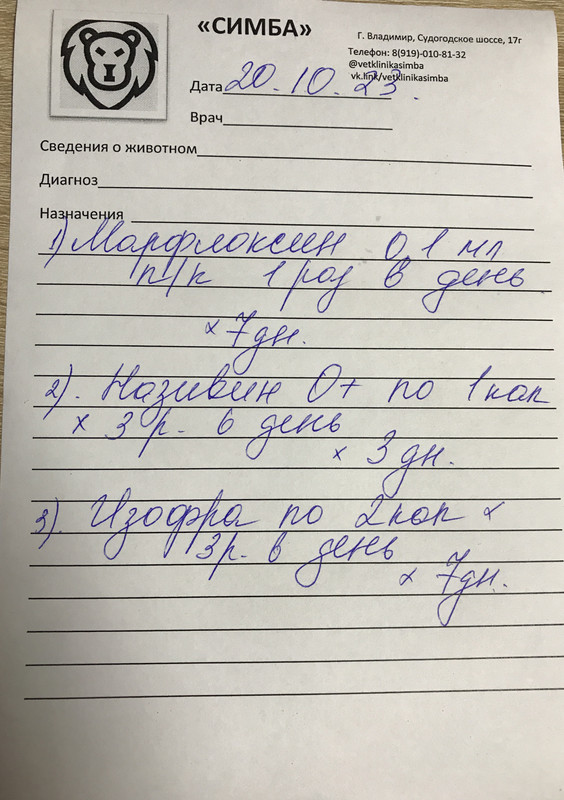 «СИМБА»
Г. Владимир, Судогодское шоссе, 17г
Телефон: 8(919)-010-81-32
@vetklinikasimba
vk.link/vetklinikasimba
Дата 20.10.23.
Врач
Сведения о животном
Диагноз
Назначения
1) Марфлоксин 0,1 мл
п/к 1 раз в день
× 7 дн.
2). Називин 0+ по 1 кап
× 3 р. в день
× 3 дн.
3). Изофра по 2 кап ×
3 р. в день
× 7 дн.